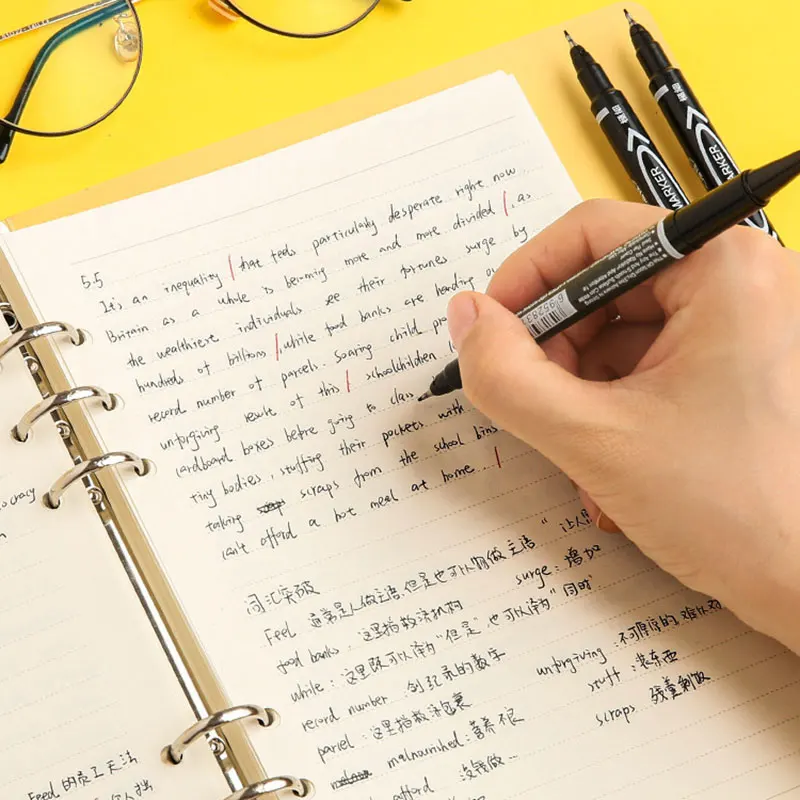 5.5
It's an inequality that feels particularly desperate right now
Britain as a whole is becoming more and more divided, as
the wealthiest individuals see their fortunes surge by
hundreds of billions, while food banks are handing
record number of parcels. Soaring child
unforgiving result of this schoolchildren
cardboard boxes before going to class
tiny bodies, stuffing their pockets with
taking scraps from the school bins
can't afford a hot meal at home.
词汇突破
Feel 通常是人做主语,但是也可以物做主语"让人
food banks: 这里指救济机构 surge: 增加
while: 这里既可以译为"但是"也可以译为"同时"
record number 创纪录的数字 unforgiving 不可原谅的,难以
parcel: 这里指救济包裹 stuff: 装东西
malnourished: 营养不良 scraps 残羹剩饭
afford 没钱做…
ocracy
Feed 的
MARKER
MARKER